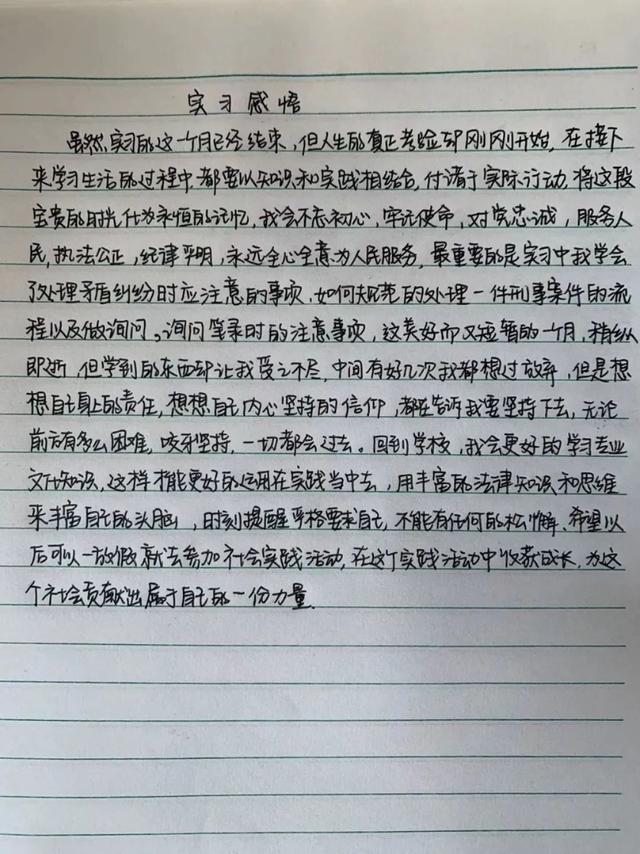 实习感悟
虽然实习的这一个月已经结束，但人生的真正考验却刚刚开始，在接下
来学习生活的过程中，都要以知识和实践相结合，付诸于实际行动，将这段
宝贵的时光化为永恒的记忆，我会不忘初心，牢记使命，对党忠诚，服务人
民，执法公正，纪律严明，永远全心全意为人民服务，最重要的是实习中我学会
了处理矛盾纠纷时应注意的事项，如何规范的处理一件刑事案件的流
程以及做询问。询问笔录时的注意事项，这美好而又短暂的一个月，稍纵
即逝，但学到的东西却让我受之不尽，中间有好几次我都想过放弃，但是想
想自己身上的责任，想想自己内心坚持的信仰，都在告诉我要坚持下去，无论
前方有多么困难，咬牙坚持，一切都会过去。回到学校，我会更好的学习专业
文化知识，这样才能更好的运用在实践当中去，用丰富的法律知识和思维
来丰富自己的头脑，时刻提醒严格要求自己，不能有任何的松懈、希望以
后可以一放假就去参加社会实践活动，在这个实践活动中收获成长，为这
个社会贡献出属于自己的一份力量.